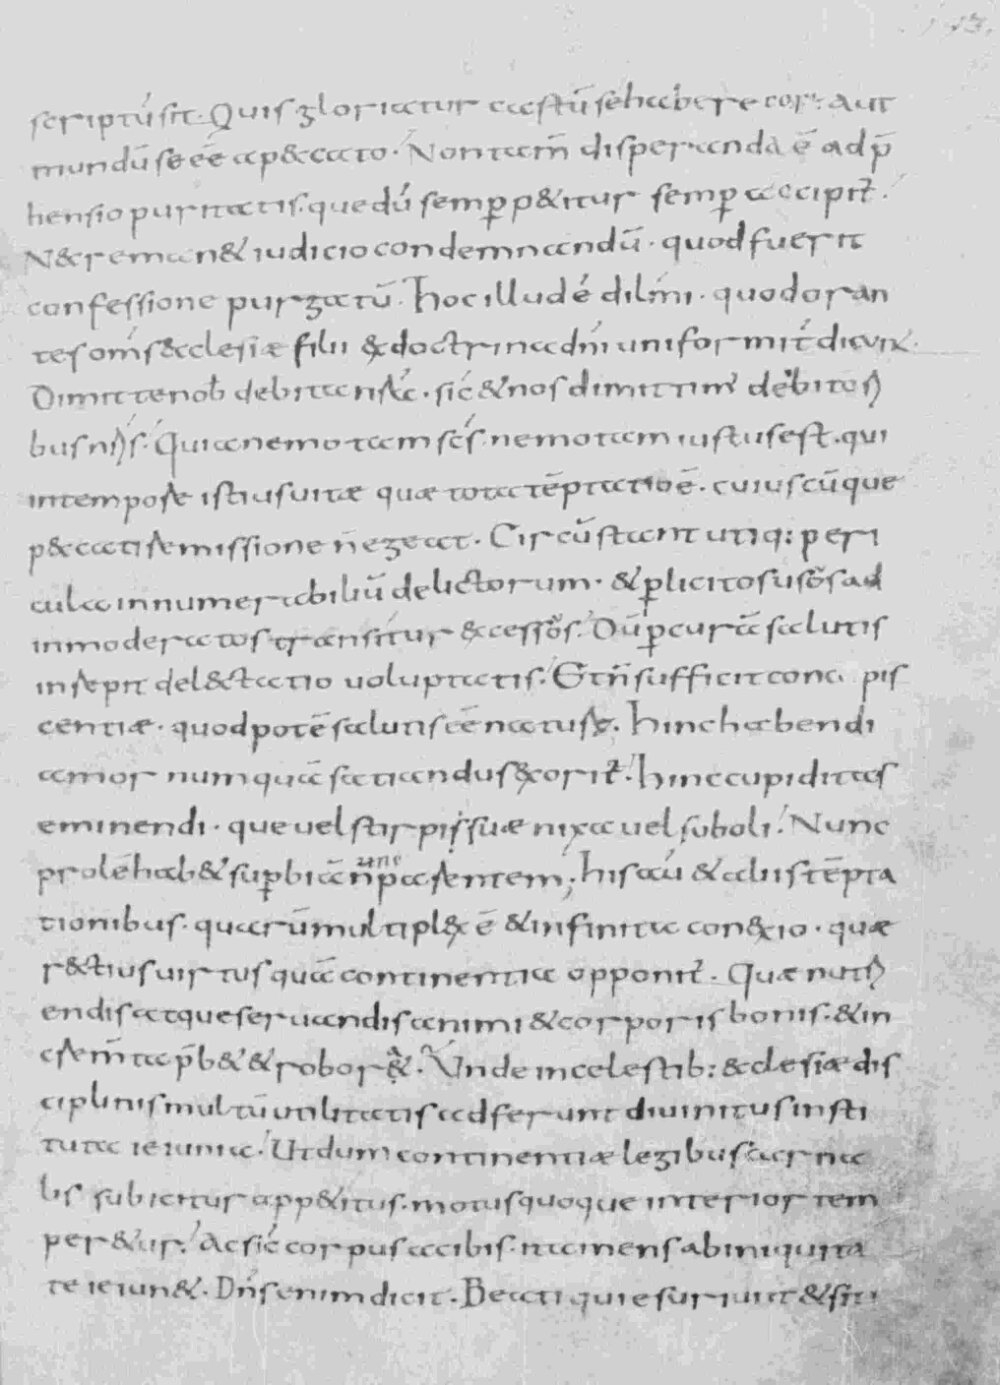 scriptū sit. Quis gloriatur castū se habere cor. aut
mundū se eē a p&cato. Non tam̄ disperanda ē adp̄
hensio puritatis. que dū semp̱ p&itur semp̱ accipit̄.
N& reman& iudicio condemnandū. quod fuerit
confessione purgatū. hoc illud ē dilm̄i. quod oran
tes om̄s &clesiæ filii & doctrina dn̄i uniformit̄ dicunt.
Dimitte nob̄ debita nr̄a. sic̄ & nos dimittim' debitori
bus nr̄is. Quia nemo tam sc̄s. nemo tam iustus est. qui
in tempore istius uitæ quæ tota tēptatio ē. cuiuscūque
p&cati remissione n̄ egeat. Circūstant utiq: peri
cula innumerabiliū delictorum. & p̱ licitos usos ad
inmoderatos transitur &cessos. Dū p̱ curā salutis
inrepit del&tatio uoluptatis. Et n̄ sufficit concupis
centiæ. quod potē salutis eē naturæ. hinc habendi
amor numquā satiandus &orit̄. hinc cupiditas
eminendi. que uel stirpis suæ nixa uel soboli. Nunc
prolē hab& sup̱biā n̄ parentem; his aū & aliis tēpta
tionibus. quarū multipl& ē & infinita con&io. quæ
r&tius uirtus quā continentia opponit̄. Quæ nutri
endis atque seruandis animi & corporis bonis. & in
crem̄ta p̄b& & robor&. Unde in celestib: &clesiæ dis
ciplinis multū utilitatis adferunt diuinitus insti
tuta ieiunia. Ut dum continentiæ legibus carna
lis subicitur app&itus. motus quoque interior tem
per&ur. Ac sic̄ corpus a cibis. ita mens ab iniquita
te ieiun&. Dn̄s enim dicit. Beati qui esuriunt & siti